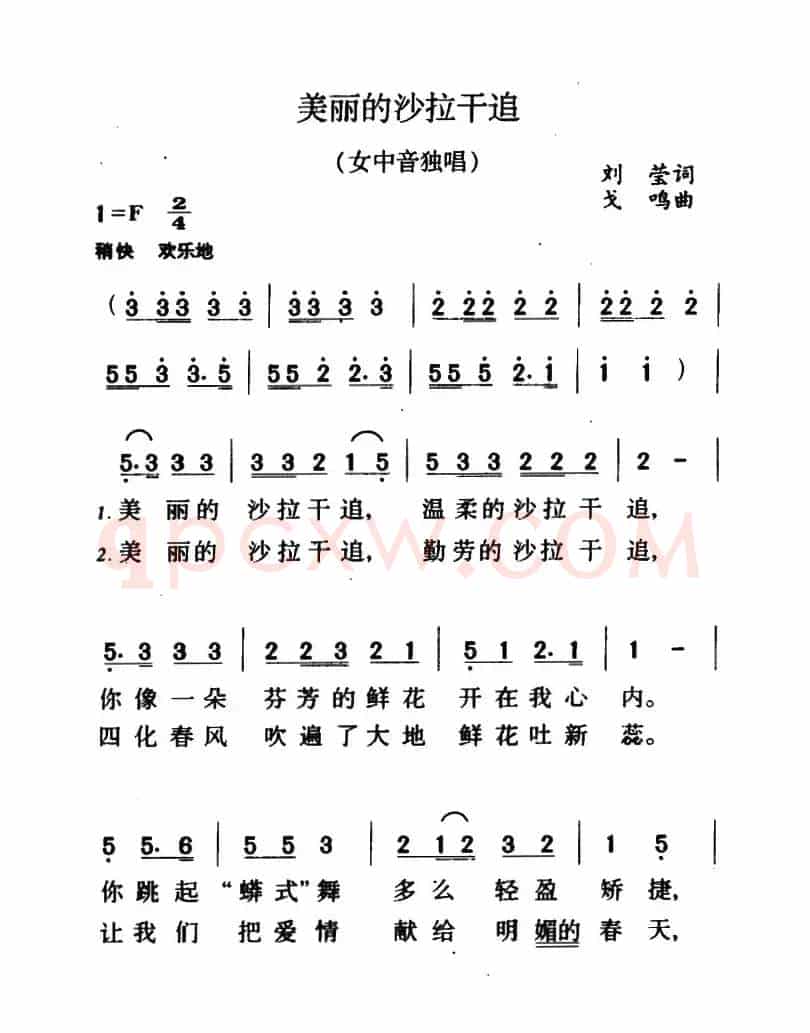 美丽的沙拉干追
（女中音独唱）
刘 莹词
戈 鸣曲
1=F 2/4
稍快 欢乐地
( 3 33 3 3 | 33 3 3 | 2 22 2 2 | 22 2 2 |
55 3 3. 5 | 55 2 2. 3 | 55 5 2. 1 | 1 1 ) |
5. 3 3 3 | 3 3 2 1 5 | 5 3 3 2 2 2 | 2 - |
1. 美 丽的 沙拉干追， 温柔的沙拉干 追，
2. 美 丽的 沙拉干追， 勤劳的沙拉干 追，
qpcxw.com
5. 3 3 3 | 2 2 3 2 1 | 5 1 2. 1 | 1 - |
你像一朵 芬芳的鲜花 开在我心 内。
四化春风 吹遍了大地 鲜花吐新 蕊。
5 5. 6 | 5 5 3 | 2 1 2 3 2 | 1 5 |
你跳起“蟒式”舞 多么 轻盈 矫捷，
让我们 把爱情 献给 明媚的 春天，